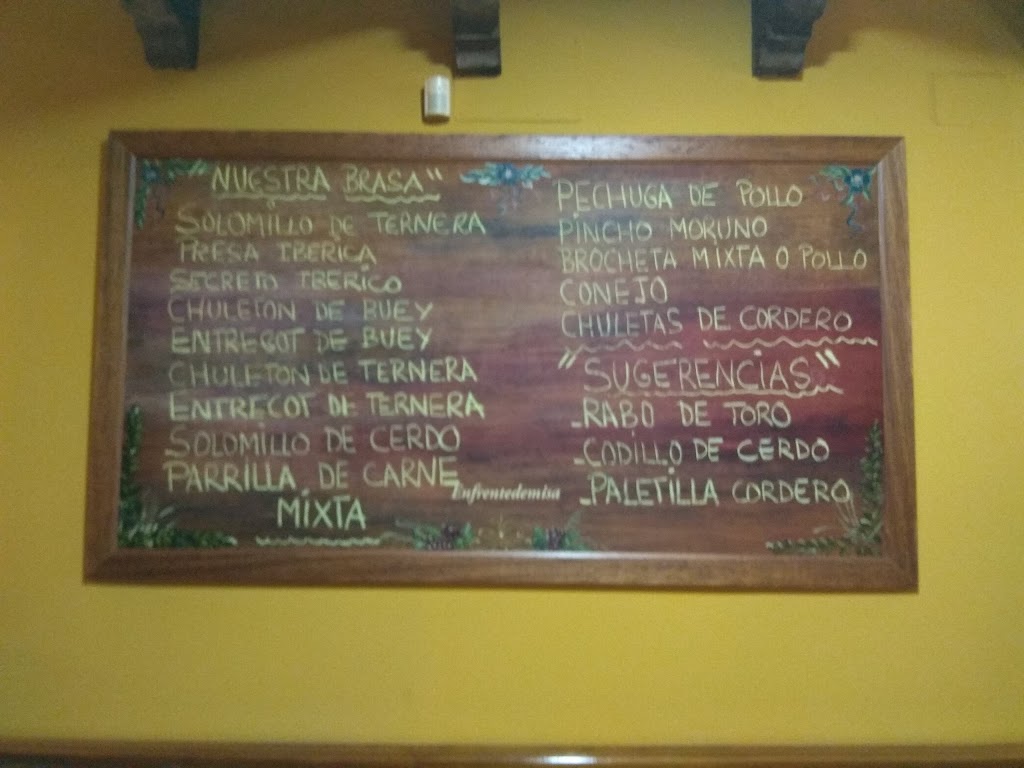 "NUESTRA BRASA"
SOLOMILLO DE TERNERA
PRESA IBERICA
SECRETO IBERICO
CHULETON DE BUEY
ENTRECOT DE BUEY
CHULETON DE TERNERA
ENTRECOT DE TERNERA
SOLOMILLO DE CERDO
PARRILLA DE CARNE
MIXTA
Enfrentedemisa
PECHUGA DE POLLO
PINCHO MORUNO
BROCHETA MIXTA O POLLO
CONEJO
CHULETAS DE CORDERO
"SUGERENCIAS"
-RABO DE TORO
-CODILLO DE CERDO
-PALETILLA CORDERO